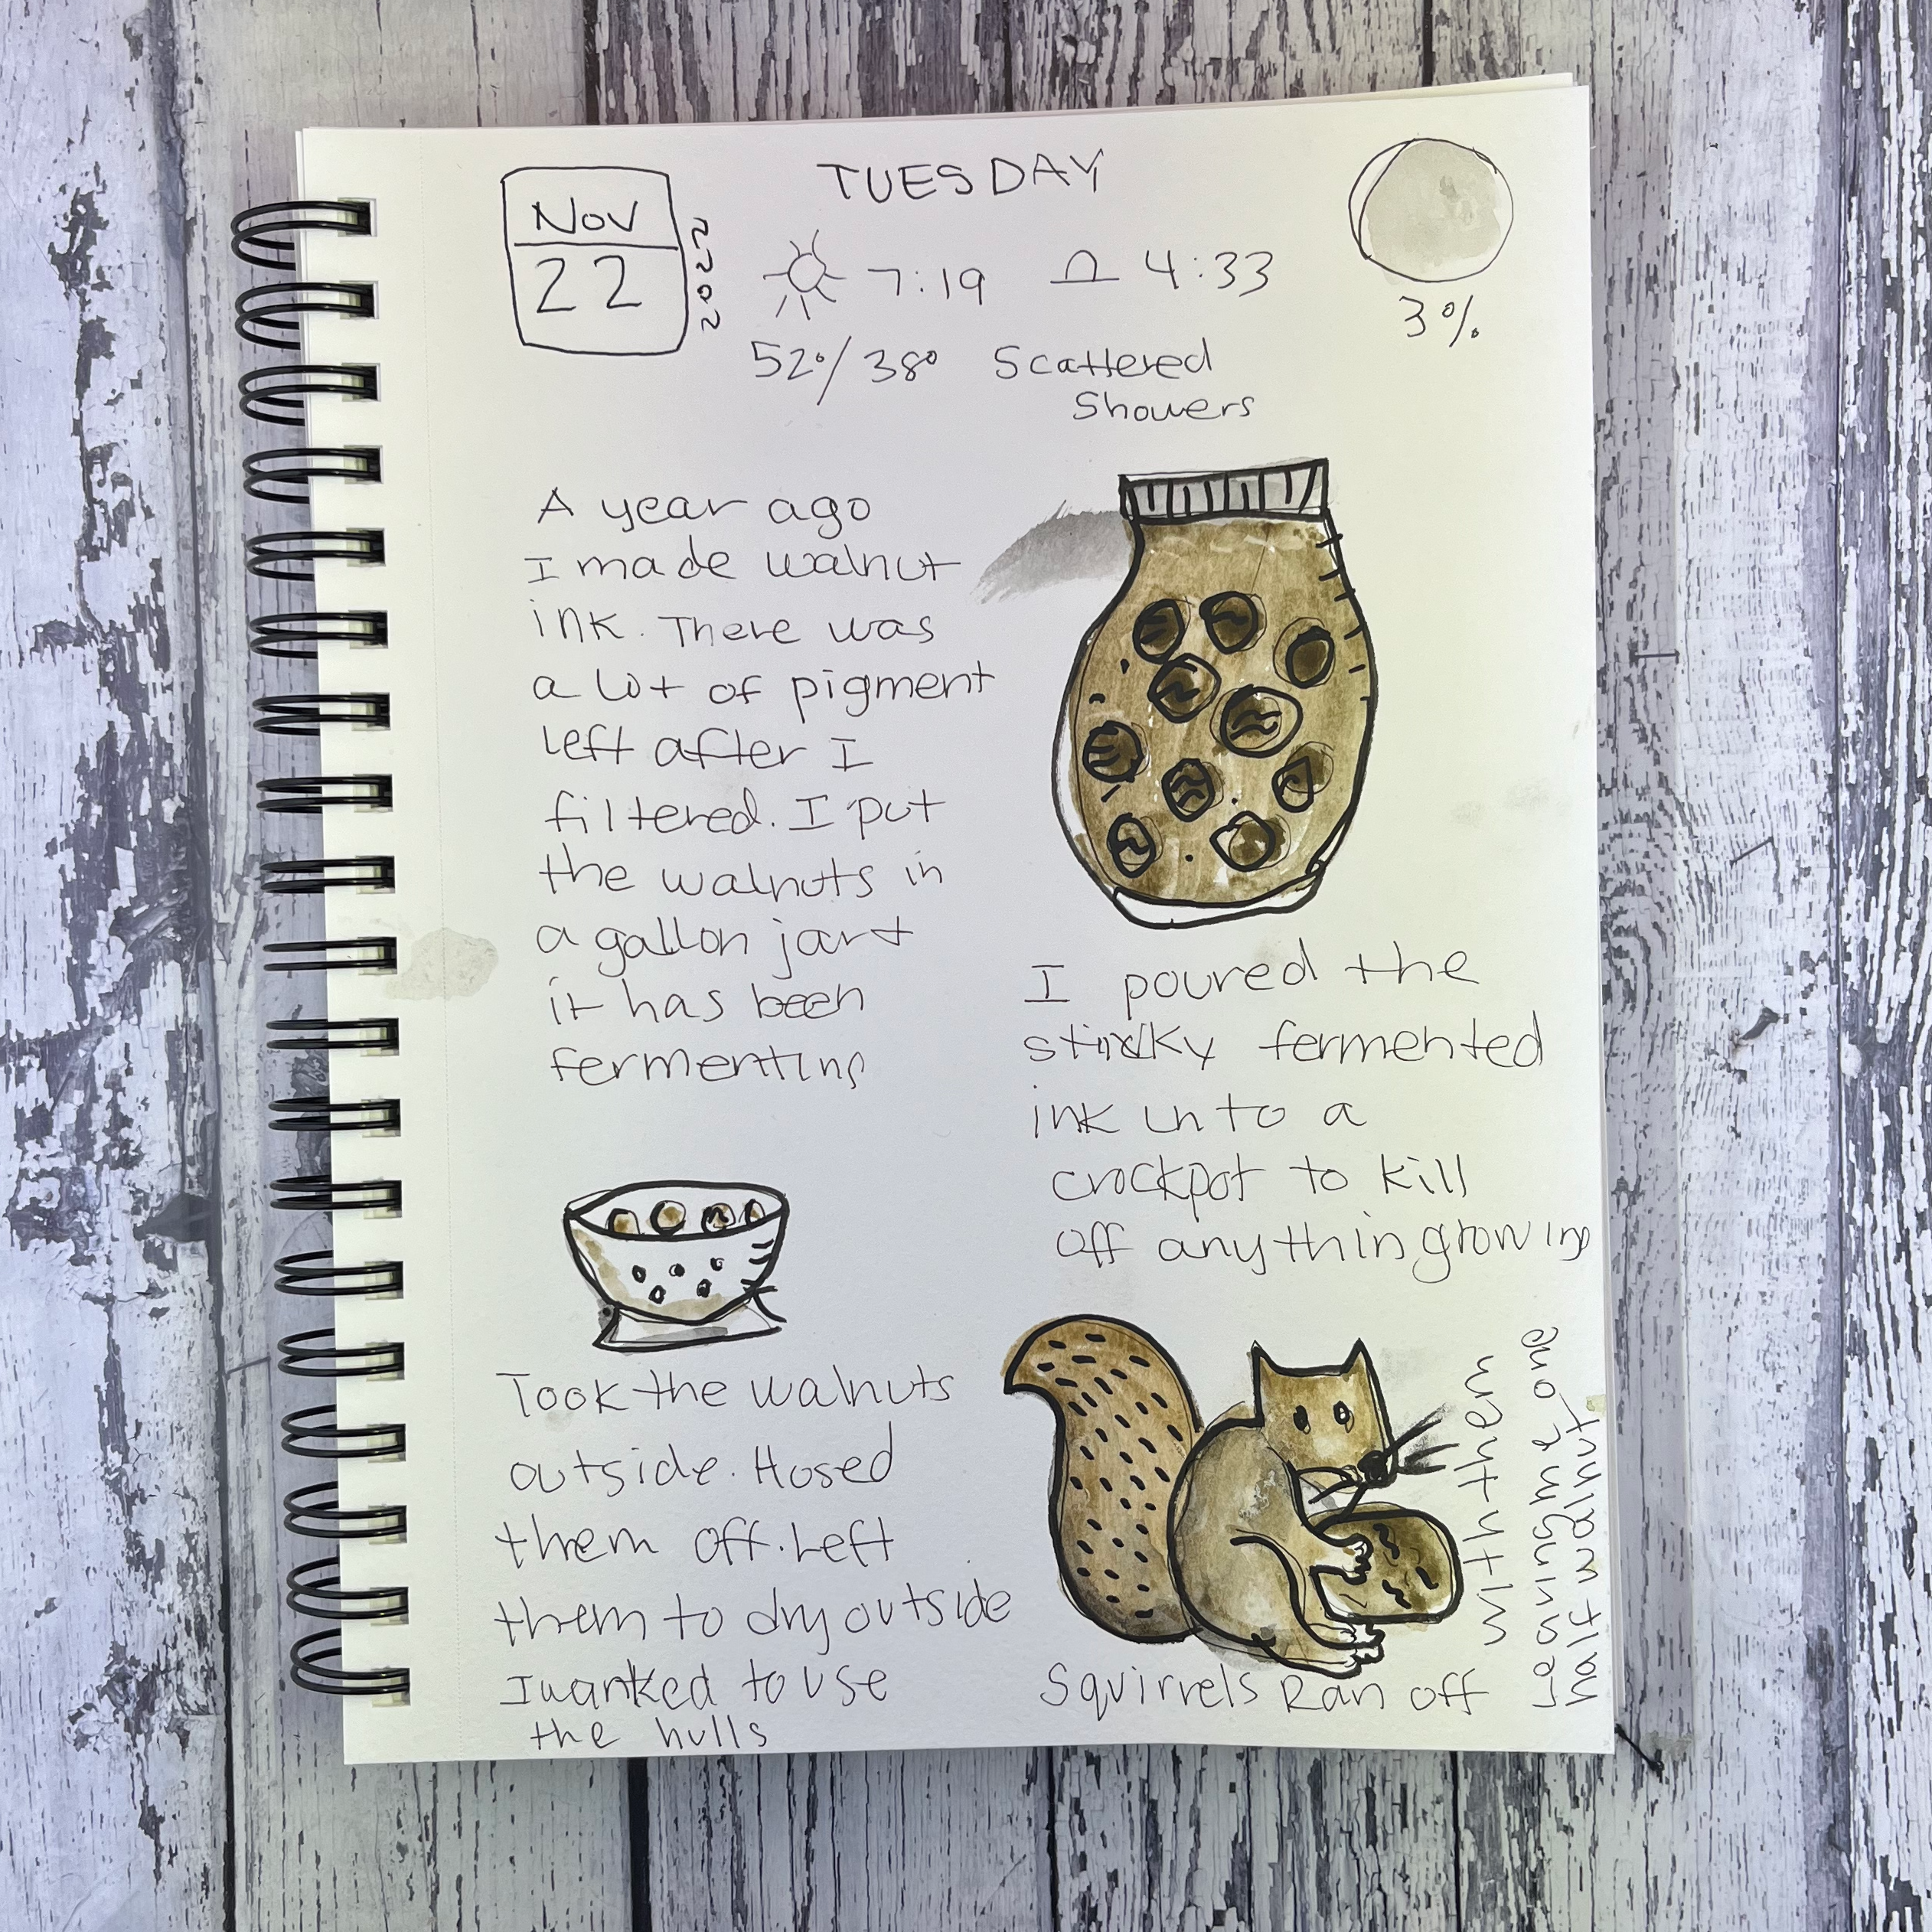 TUESDAY
NOV
22
2022
7:19
4:33
52°/38° Scattered
Showers
3%
A year ago
I made walnut
ink. There was
a lot of pigment
left after I
filtered. I put
the walnuts in
a gallon jar +
it has been
fermenting
I poured the
stinky fermented
ink into a
crockpot to kill
off anything growing
Took the walnuts
outside. Hosed
them off. Left
them to dry outside
I wanted to use
the hulls
Squirrels Ran off
with them
Leaving me one
half walnut